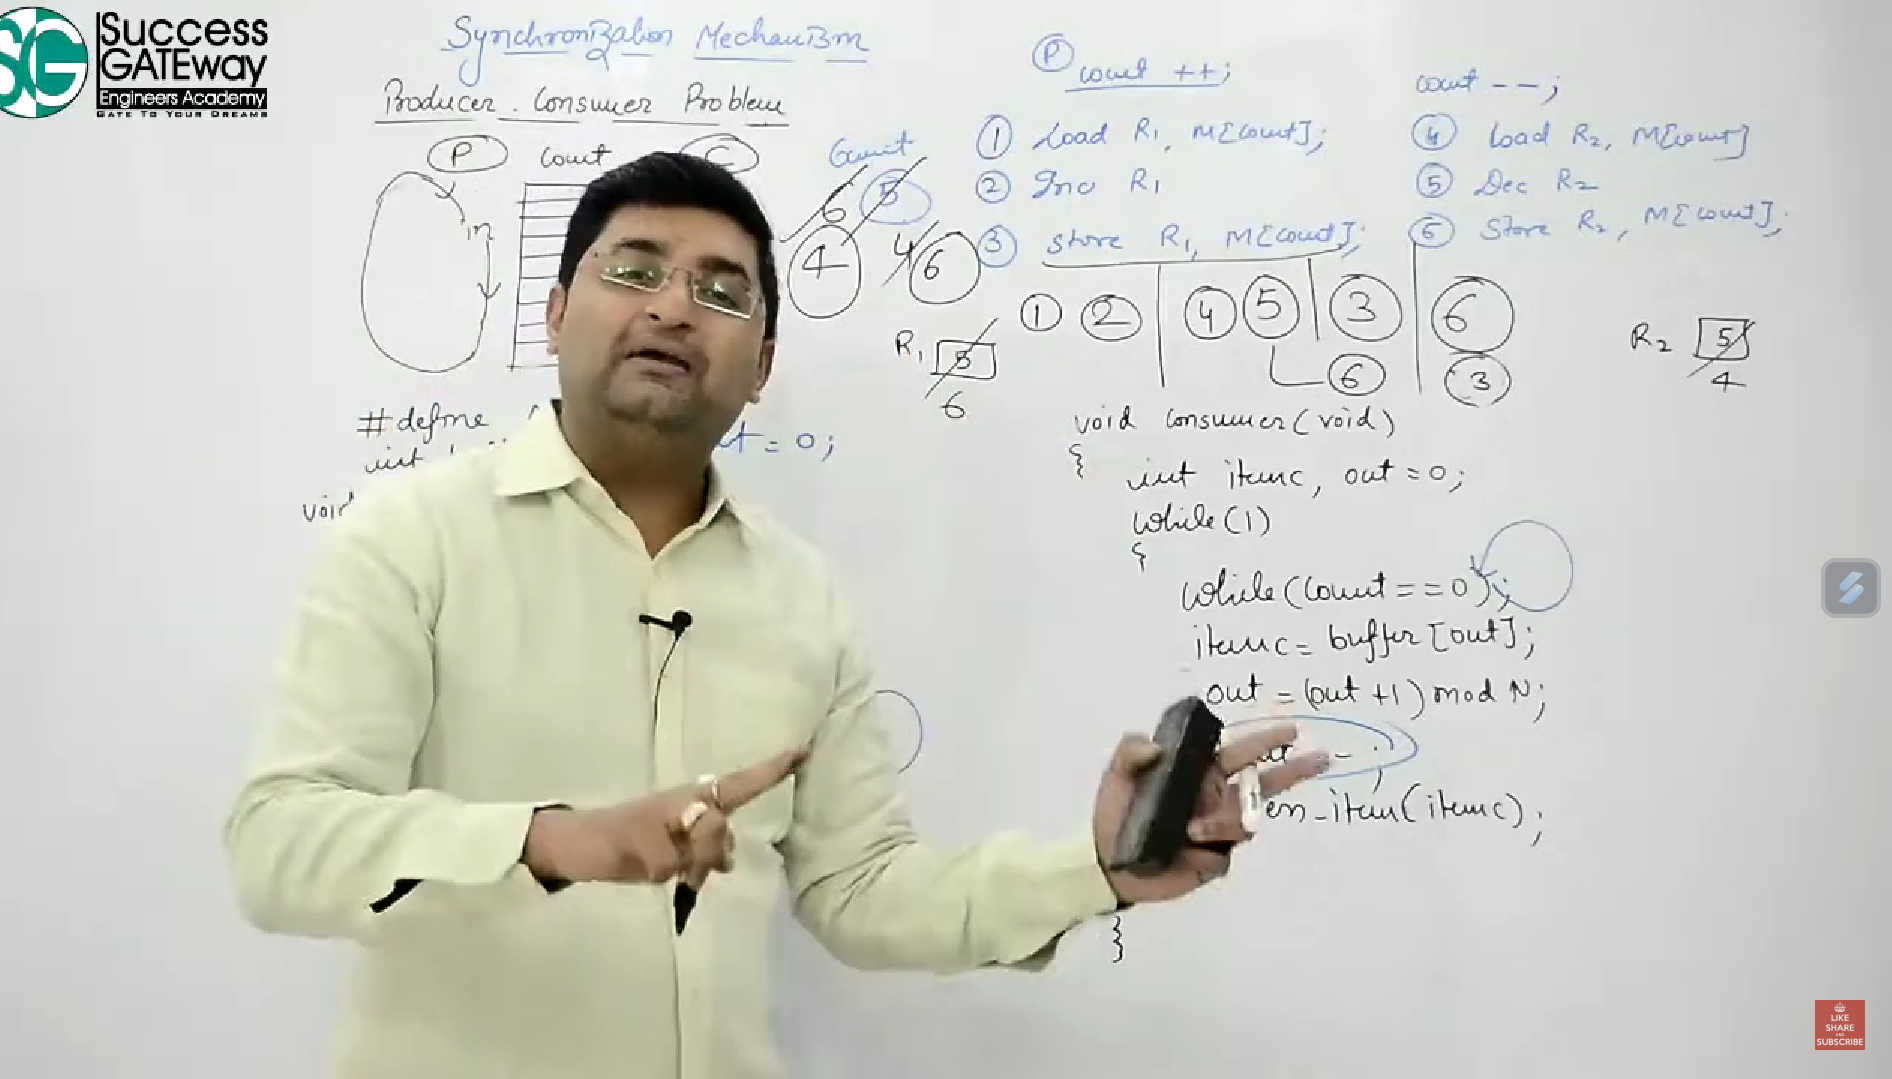 Success
GATEway
Engineers Academy
GATE TO YOUR DREAMS
Synchronization Mechanism
Producer - Consumer Problem
P count C
in
Count
6 5
4 4 6
P count ++;
1 Load R1, M[count];
2 Inc R1
3 Store R1, M[count];
count --;
4 Load R2, M[count]
5 Dec R2
6 Store R2, M[count];
1 2 4 5 3 6
6 3
R1 5
6
R2 5
4
#define
int
= 0;
void
void consumer(void)
{
int itemc, out = 0;
while(1)
{
while(count == 0);
itemc = buffer[out];
out = (out +1) mod N;
- ;
_item(itemc);
}
LIKE
SHARE
AND
SUBSCRIBE